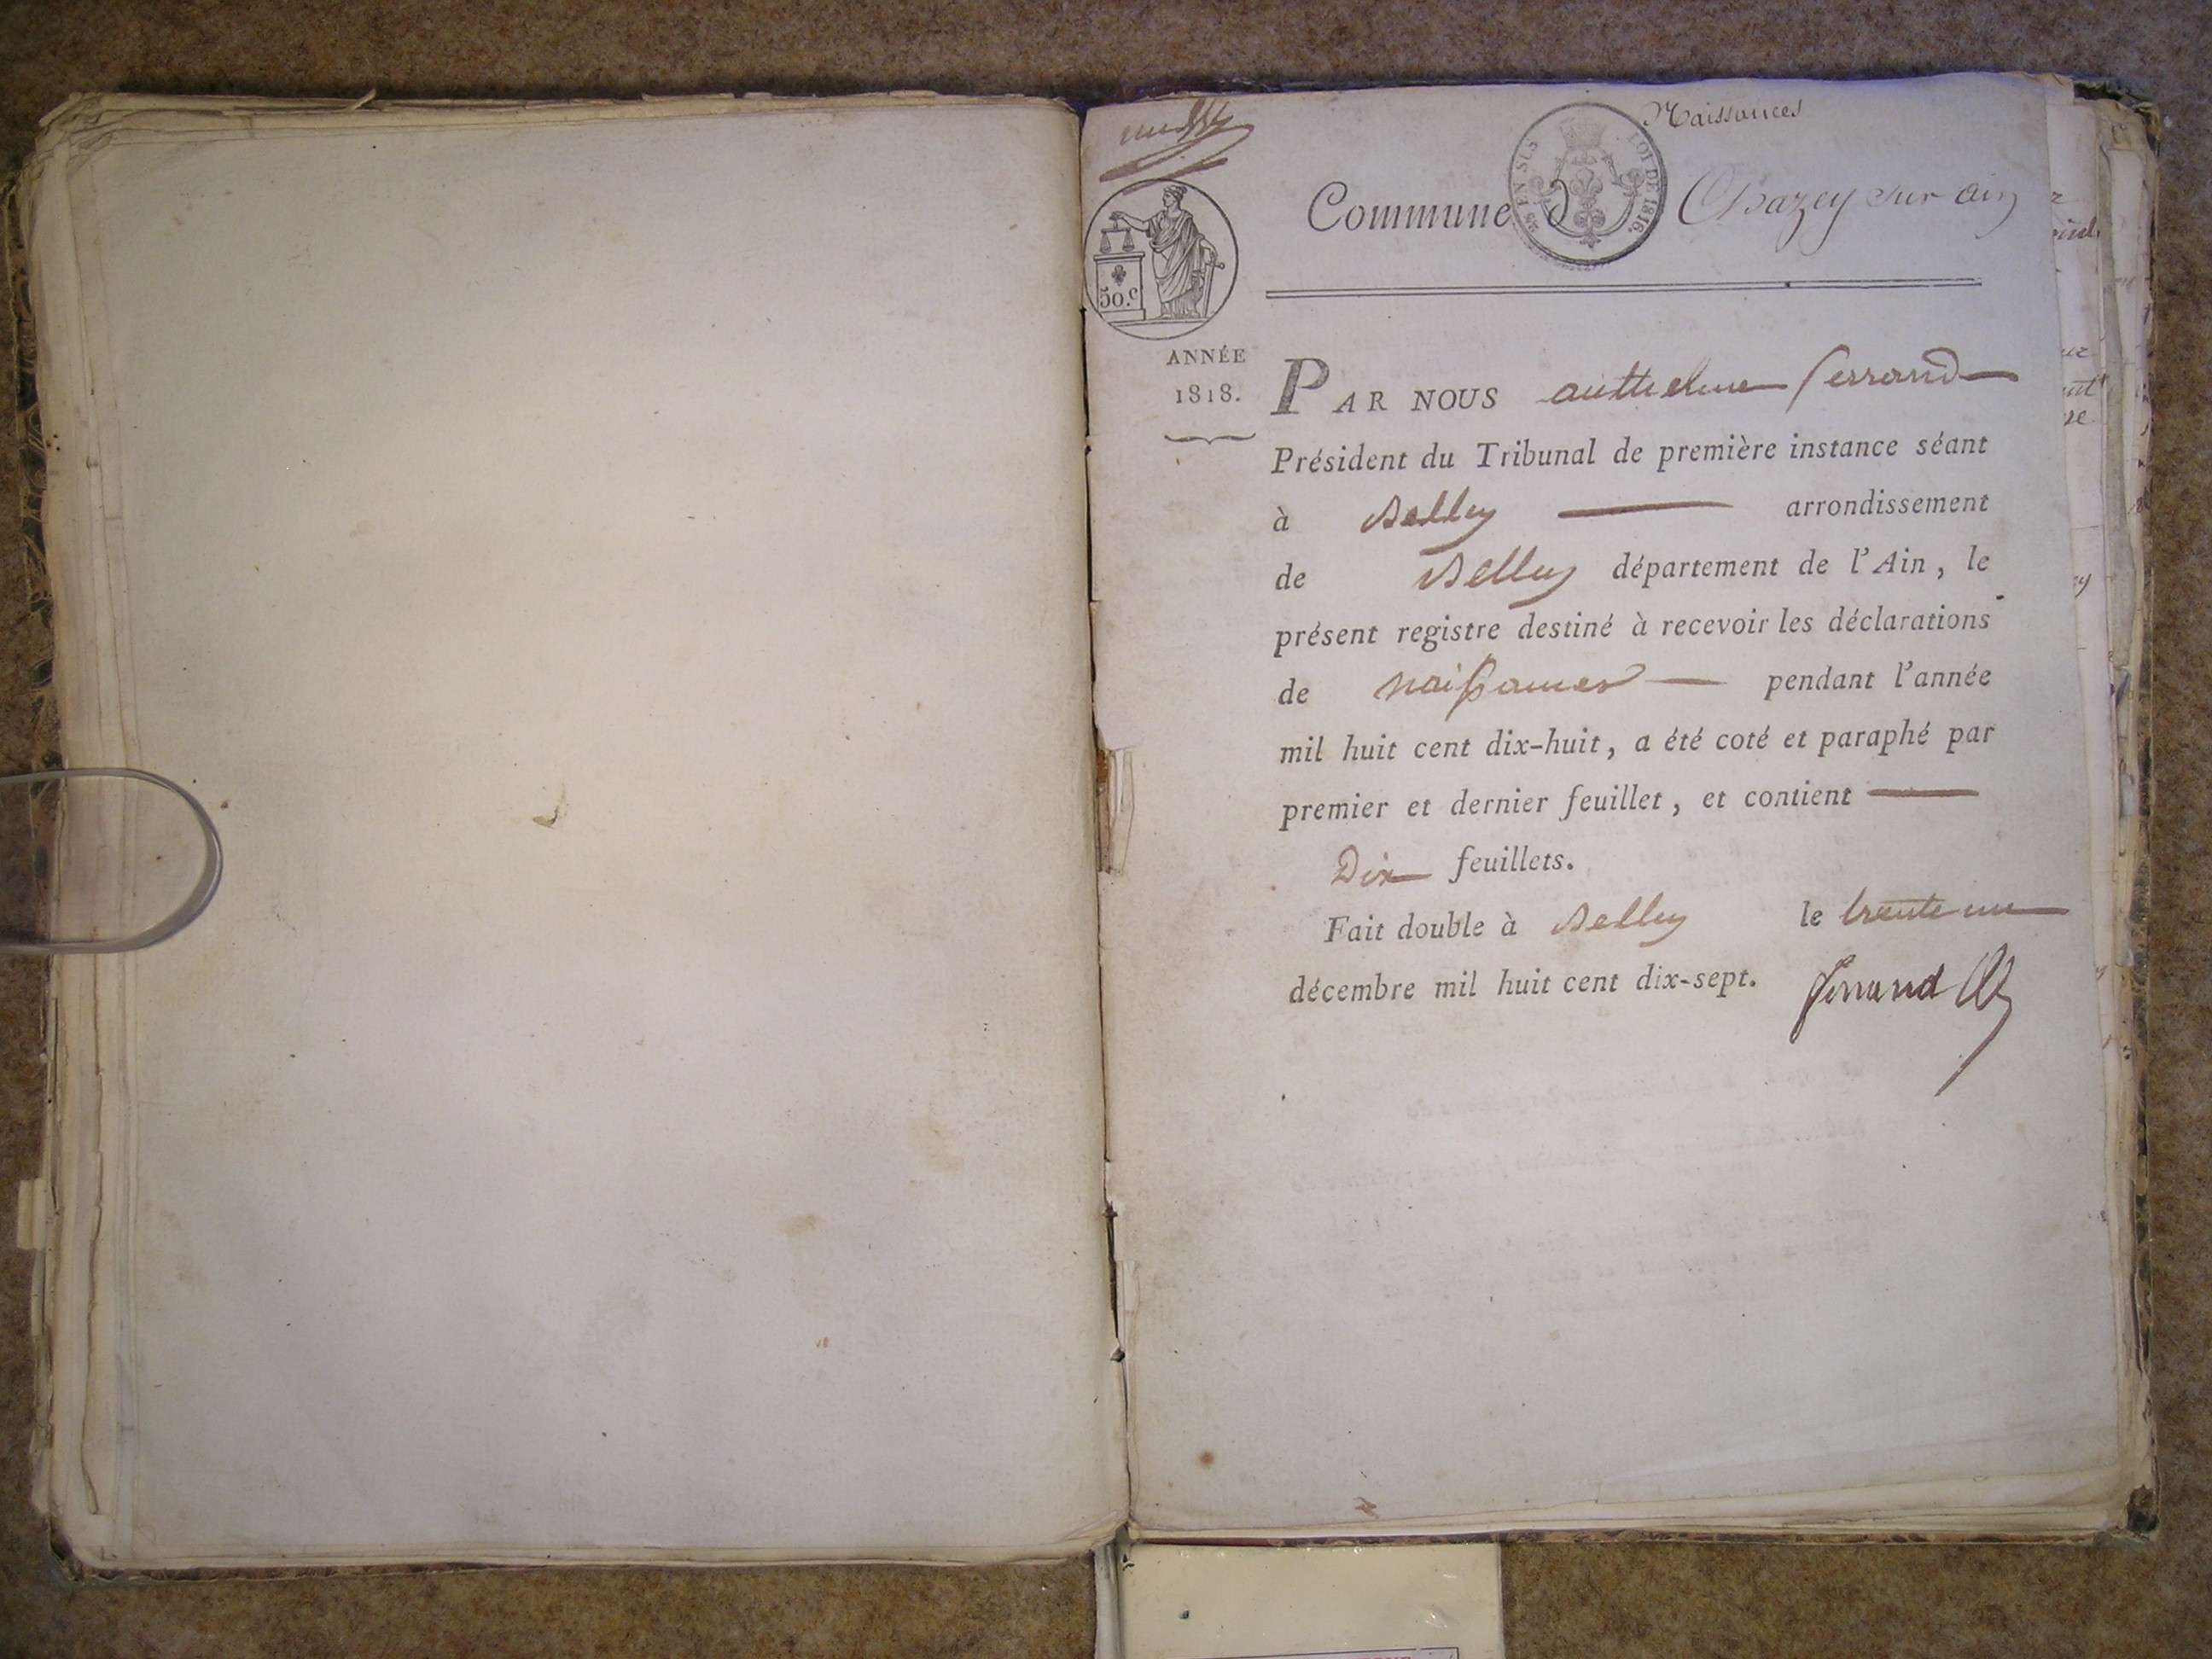 Naissances
Commune d Chazey sur ain
25 EN SUS
LOI DE 1816.
50.c
ANNÉE
1818.
PAR NOUS anthelme ferrand
Président du Tribunal de première instance séant
à Belley arrondissement
de Belley département de l'Ain, le
présent registre destiné à recevoir les déclarations
de naissances pendant l'année
mil huit cent dix-huit, a été coté et paraphé par
premier et dernier feuillet, et contient
Dix feuillets.
Fait double à Belley le trente un
décembre mil huit cent dix-sept.
ferrand